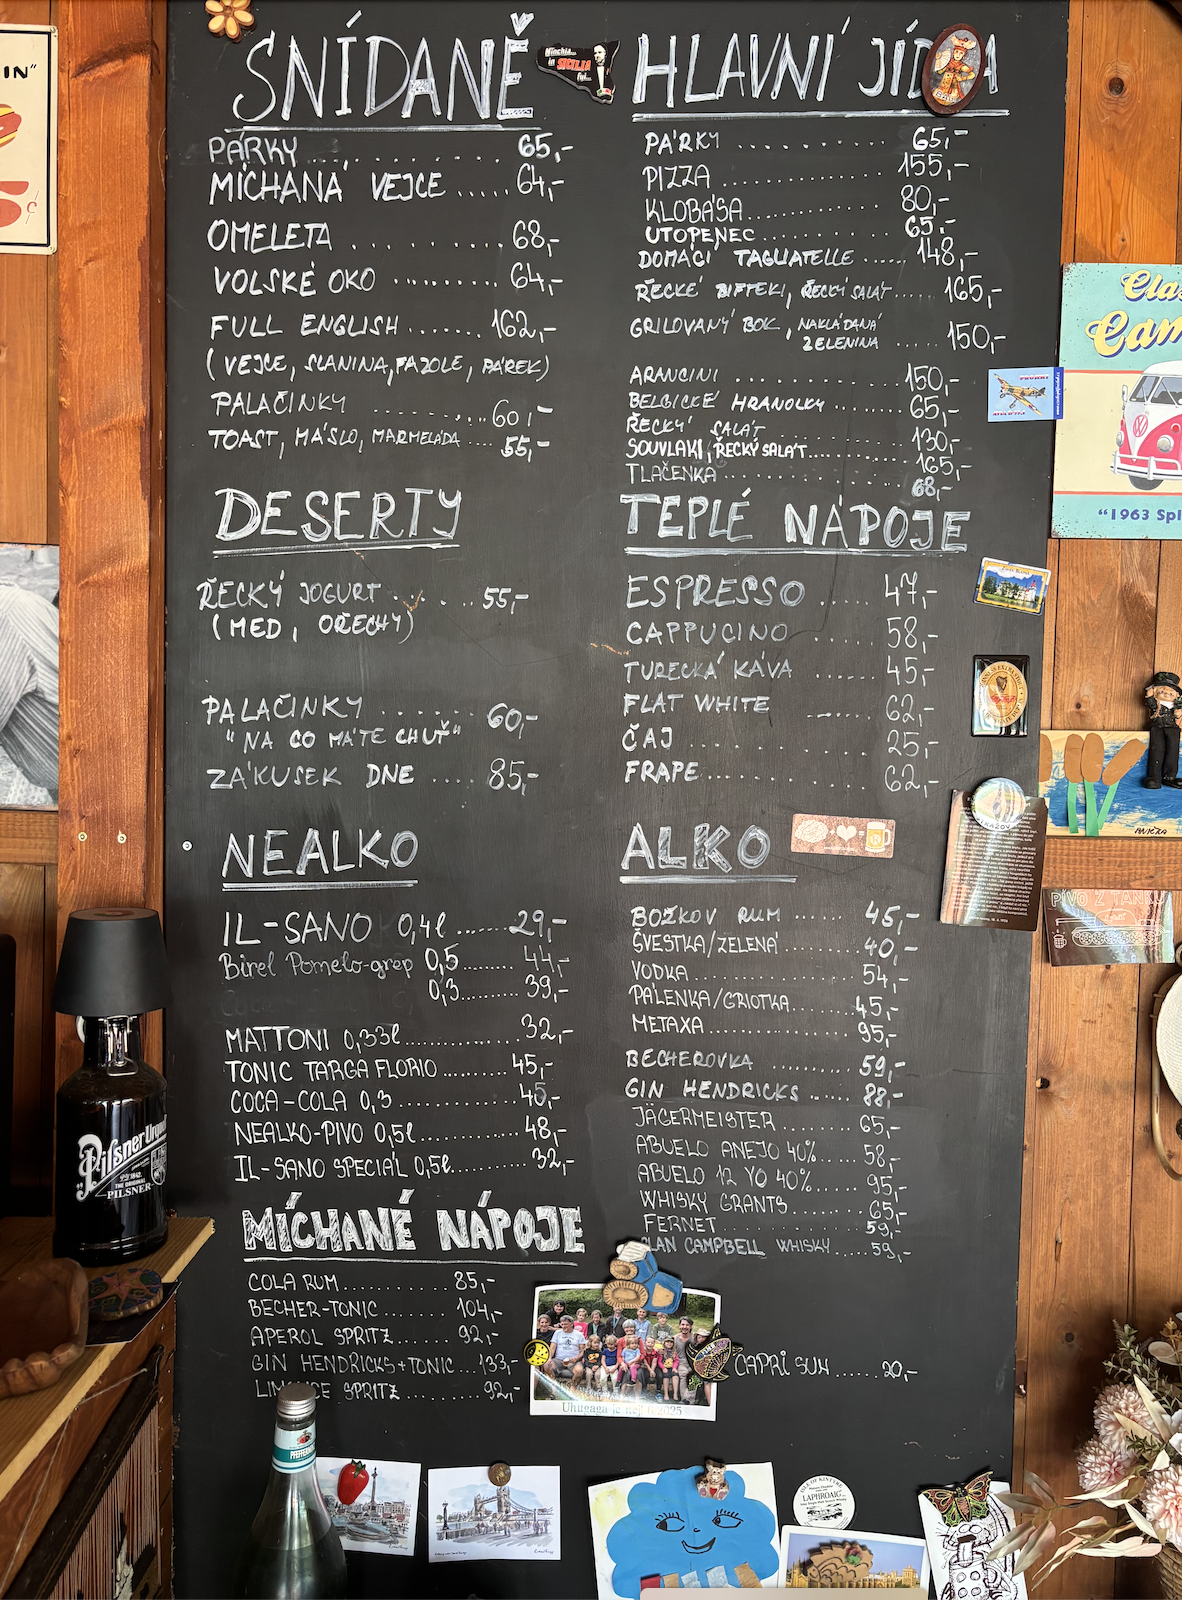 SNÍDANĚ
PÁRKY ........... 65,-
MÍCHANÁ VEJCE ..... 64,-
OMELETA ........ 68,-
VOLSKÉ OKO ......... 64,-
FULL ENGLISH ....... 162,-
(VEJCE, SLANINA, FAZOLE, PÁREK)
PALAČINKY ........... 60,-
TOAST, MÁSLO, MARMELÁDA .... 55,-
DESERTY
ŘECKÝ JOGURT ..... 55,-
(MED, OŘECHY)
PALAČINKY ....... 60,-
"NA CO MÁTE CHUŤ"
ZÁKUSEK DNE .... 85,-
NEALKO
IL-SANO 0,4l ....... 29,-
Birel Pomelo-grep 0,5 ........ 44,-
0,3 ......... 39,-
MATTONI 0,33l ............... 32,-
TONIC TARGA FLORIO .......... 45,-
COCA-COLA 0,3 ............... 45,-
NEALKO-PIVO 0,5l ............ 48,-
IL-SANO SPECIÁL 0,5l ........ 32,-
MÍCHANÉ NÁPOJE
COLA RUM .......... 85,-
BECHER-TONIC ....... 104,-
APEROL SPRITZ ...... 92,-
GIN HENDRICKS+TONIC ... 133,-
SPRITZ ....... 92,-
HLAVNÍ JÍDLA
PÁRKY ........ 65,-
PIZZA .............. 155,-
KLOBÁSA ............ 80,-
UTOPENEC ............ 65,-
DOMÁCÍ TAGLIATELLE ...... 148,-
ŘECKÉ BIFTEKI, ŘECKÝ SALÁT ..... 165,-
GRILOVANÝ BOK, NAKLÁDANÁ
ZELENINA ..... 150,-
ARANCINI ............ 150,-
BELGICKÉ HRANOLKY ..... 65,-
ŘECKÝ SALÁT ......... 130,-
SOUVLAKI, ŘECKÝ SALÁT ......... 165,-
TLAČENKA ............ 68,-
TEPLÉ NÁPOJE
ESPRESSO ..... 47,-
CAPPUCINO ...... 58,-
TURECKÁ KÁVA ...... 45,-
FLAT WHITE ...... 62,-
ČAJ ............. 25,-
FRAPE ........... 62,-
ALKO
BOŽKOV RUM ...... 45,-
ŠVESTKA/ZELENÁ ......... 40,-
VODKA ............... 54,-
PÁLENKA/GRIOTKA ....... 45,-
METAXA .............. 95,-
BECHEROVKA ......... 59,-
GIN HENDRICKS ...... 88,-
JÄGERMEISTER ........ 65,-
ABUELO ANEJO 40% ..... 58,-
ABUELO 12 YO 40% ...... 95,-
WHISKY GRANTS ........ 65,-
FERNET ............. 59,-
CLAN CAMPBELL WHISKY ..... 59,-
CAPRI SUN ..... 20,-
Minchia...
in SICILIA
fui...
IN"
Camp
"1963 Spl
PIVO Z TANKU
Pilsner Urquell
THE ORIGINAL
PILSNER
LAPHROAIG
Uhugaga je nej! 2025